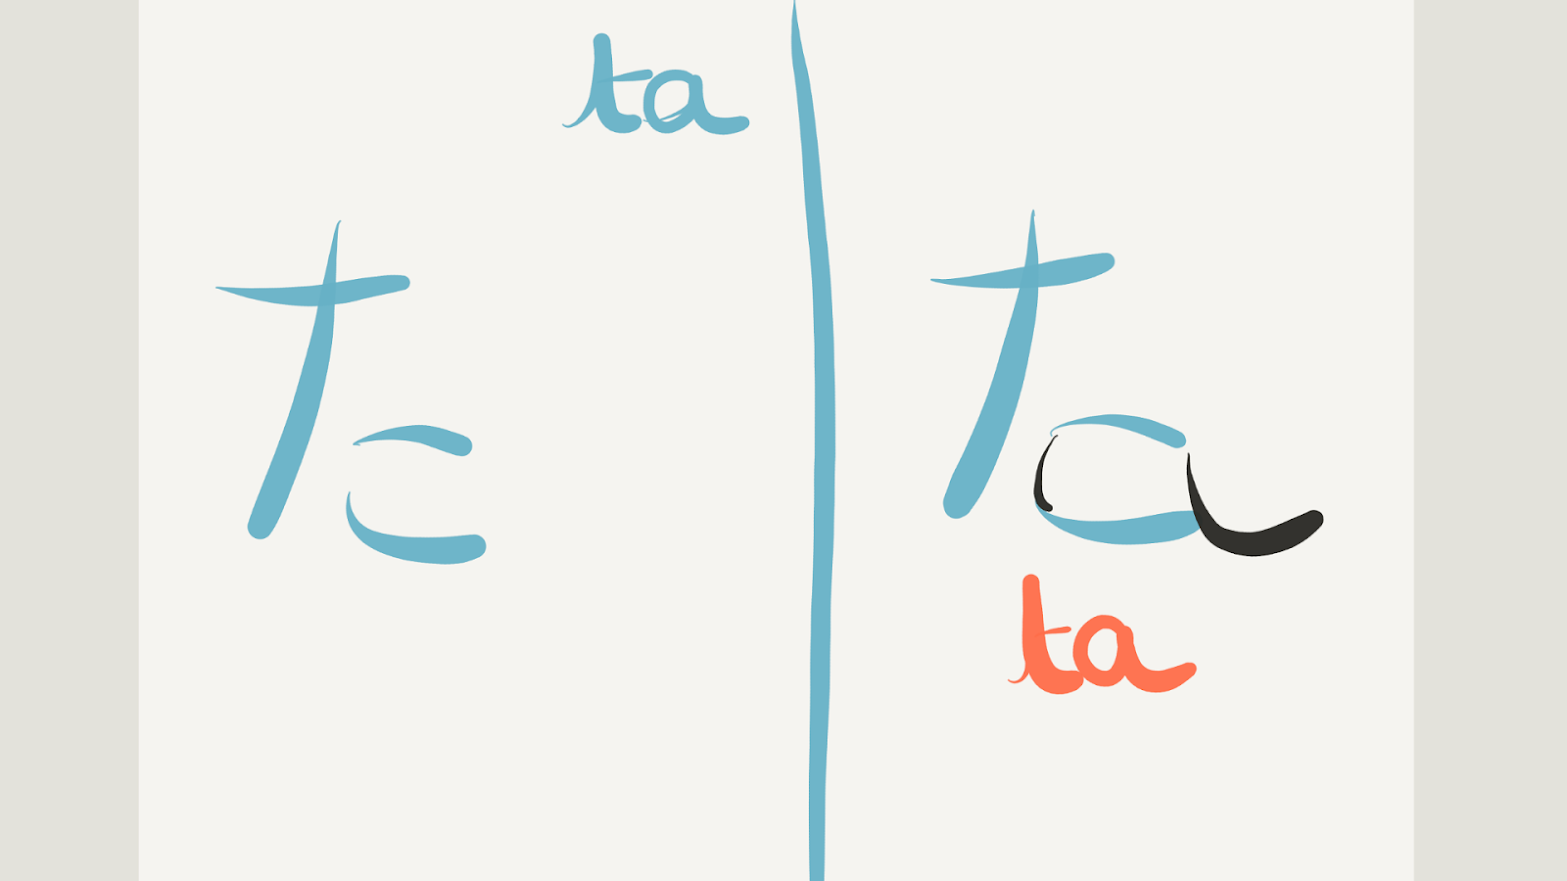 ta
た
ta
ta